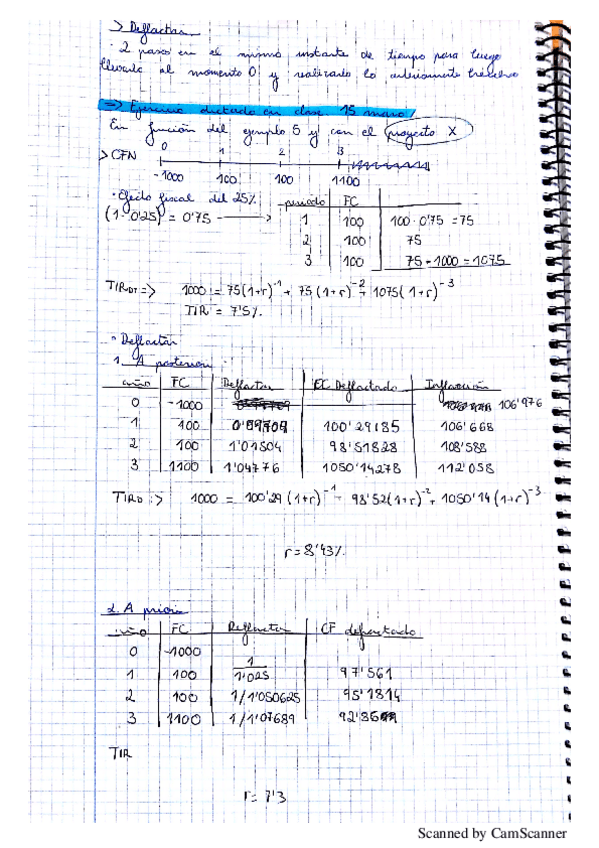 > Deflactar
· 2 pasos en el mismo instante de tiempo para luego
llevarlo al momento 0 y realizarlo lo anteriormente
=> Ejercicio dictado en clase 15 marzo
En función del ejemplo 5 y con el proyecto X
> CFN 0 1 2 3
-1000 100 100 1100
· Efecto fiscal del 25%
(1-0'25) = 0'75
periodo FC
1 100 100·0'75 = 75
2 100 75
3 100 75+1000 = 1075
TIRDT => 1000 = 75(1+r)^-1 + 75(1+r)^-2 + 1075(1+r)^-3
TIR = 7'5%
· Deflactar
1. A posteriori
año FC Deflactar FC Deflactado Inflación
0 -1000 106'976
1 100 100'29185 106'668
2 100 1'01504 98'51828 108'588
3 1100 1'04776 1050'14278 112'058
TIRD :-> 1000 = 100'29(1+r)^-1 + 98'52(1+r)^-2 + 1050'14(1+r)^-3
r = 8'43%
2. A priori
año FC Deflactar CF deflactado
0 -1000
1 100 1/1'025 97'561
2 100 1/1'050625 95'1814
3 1100 1/1'07689
TIR
r = 7'3
Scanned by CamScanner